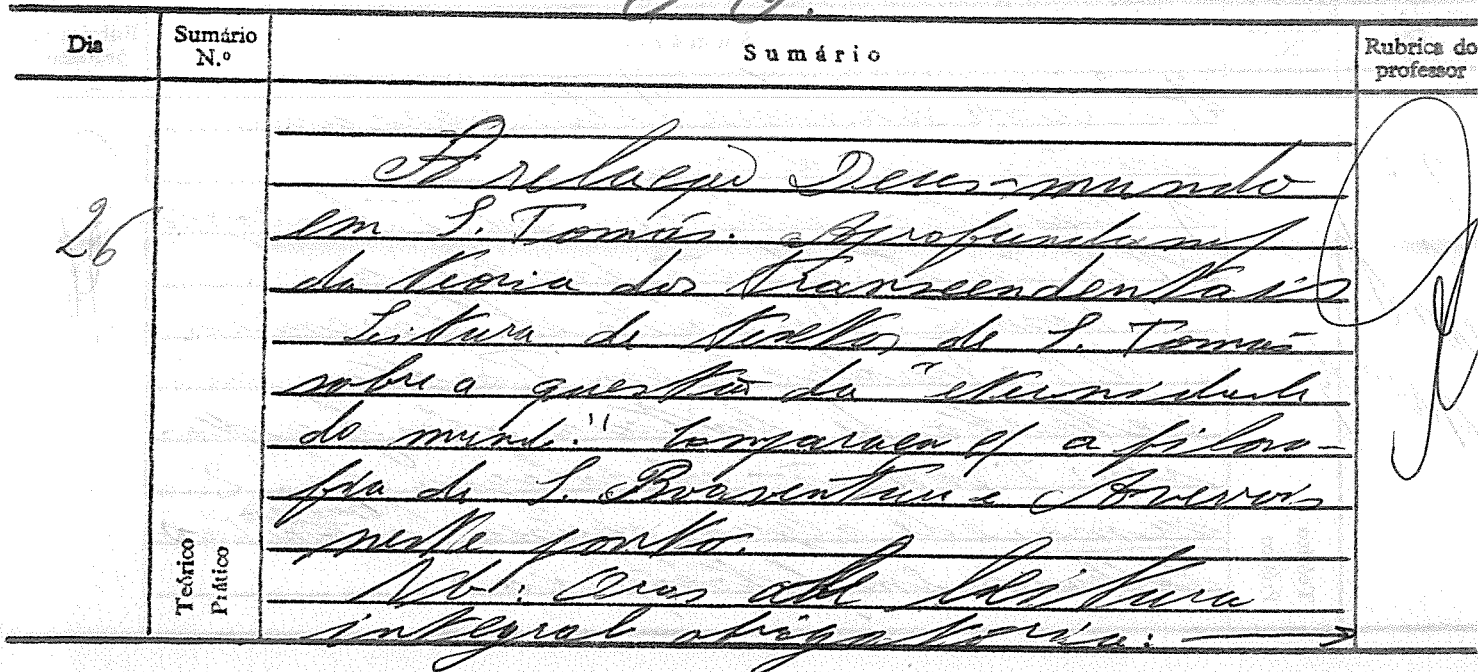 Dia Sumário N.º Sumário Rubrica do professor
26
A relação Deus-mundo
em S. Tomás. Aprofundam/
da teoria dos transcendentais
Leitura de textos de S. Tomás
sobre a questão da "eternidade
do mundo." Comparação c/ a filoso-
fia de S. Boaventura e Averrois
neste ponto.
Nb: leitura
integral obrigatória: →
Teórico
Prático